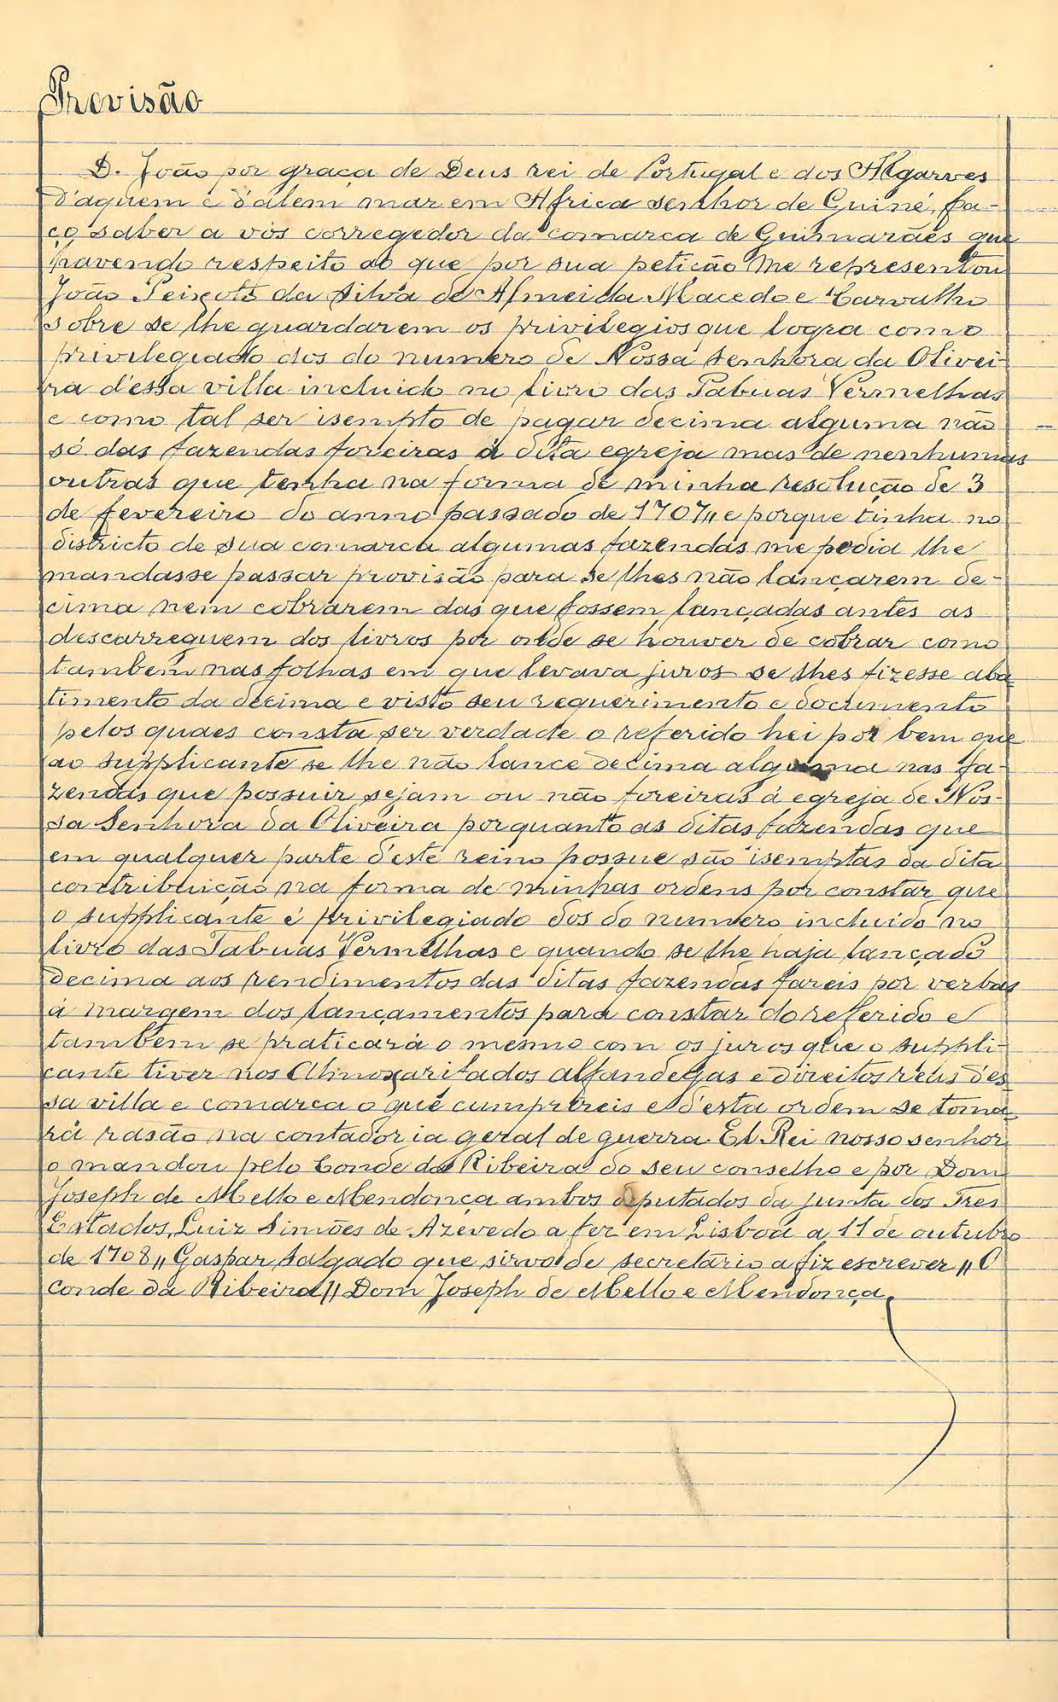 Provisão
D. João por graça de Deus rei de Portugal e dos Algarves
d'aquem e d'alem mar em Africa senhor de Guiné, fa-
ço saber a vós corregedor da comarca de Guimarães que
havendo respeito ao que por sua petição me representou
João Peixoto da Silva de Almeida Macedo e Carvalho
sobre se lhe guardarem os privilegios que logra como
privilegiado dos do numero de Nossa Senhora da Olivei-
ra d'essa villa incluido no livro das Tabuas Vermelhas
e como tal ser isempto de pagar decima alguma não
só das fazendas foreiras á dita egreja mas de nenhumas
outras que tenha na forma de minha resolução de 3
de fevereiro do anno passado de 1707,, e porque tinha no
districto de sua comarca algumas fazendas me pedia lhe
mandasse passar provisão para se lhes não lançarem de-
cima nem cobrarem das que fossem lançadas antes as
descarreguem dos livros por onde se houver de cobrar como
tambem nas folhas em que levava juros se lhes fizesse aba
timento da decima e visto seu requerimento e documento
pelos quaes consta ser verdade o referido hei por bem que
ao supplicante se lhe não lance decima alguma nas fa-
zendas que possuir sejam ou não foreiras á egreja de Nos-
sa Senhora da Oliveira porquanto as ditas fazendas que
em qualquer parte d'este reino possue são isemptas da dita
contribuição na forma de minhas ordens por constar que
o supplicante é privilegiado dos do numero incluido no
livro das Tabuas Vermelhas e quando se lhe haja lançado
decima aos rendimentos das ditas fazendas fareis por verbas
á margem dos lançamentos para constar do referido e
tambem se praticará o mesmo com os juros que o suppli-
cante tiver nos Almoxarifados alfandegas e direitos reus d'es
sa villa e comarca o que cumprireis e d'esta ordem se toma
rá rasão na contadoria geral de guerra. El Rei nosso senhor
o mandou pelo Conde da Ribeira do seu conselho e por Dom
Joseph de Mello e Mendonça ambos deputados da junta dos Tres
Estados, Luiz Simões de Azevedo a fez em Lisboa a 11 de outubro
de 1708,, Gaspar Salgado que sirvo de secretario a fiz escrever,, O
Conde da Ribeira,, Dom Joseph de Mello e Mendonça.